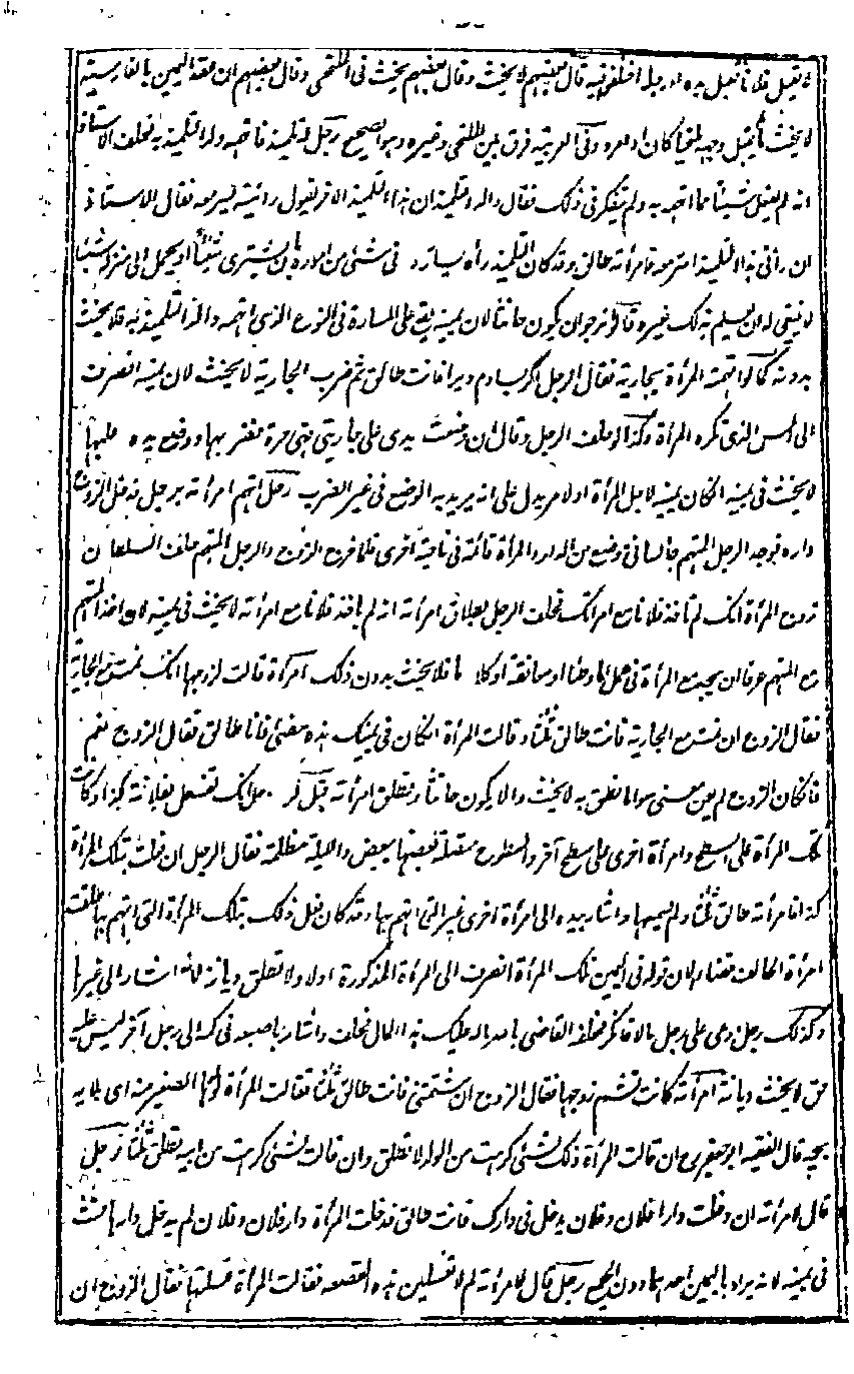 لا يقبل فلانا فقبل يده او رجله اختلفوا فيه قال بعضهم لا يحنث وقال بعضهم يحنث فى الملتحى وقال بعضهم ان عقد اليمين بالفارسية
لا يحنث ما لم يقبل وجهه ملتحيا كان او امرد وفى العربية فرق بين الملتحى وغيره وهو الصحيح رجل له تلميذ فاتهمه والد التلميذ به فحلف الاستاذ
انه لم يفعل شيئا مما اتهمه به ولم يتفكر فى ذلك فقال والد التلميذ ان هذا التلميذ الآخر يقول رأيته يسر معه فقال الاستاذ
ان رأنى هذا التلميذ اسر معه فامرأته طالق وقد كان التلميذ رأه يساره فى شئ من الامر بان يشترى شيئا او يحمل الى منزله شيئا
لا ينبغى له ان يعلم بذلك غيره قالوا نرجو ان لا يكون حانثا لان يمينه يقع على المسارة فى النوع الذى اتهمه والد التلميذ به فلا يحنث
بدونه كما لو اتهمته المرأة بجارية فقال الرجل اگر بسادم ويرا فانت طالق ثم ضرب الجارية لا يحنث لان يمينه انصرف
الى المس الذى تكره المرأة وكذا لو حلف الرجل وقال ان وضعت يدى على جاريتى فهى حرة فضربها ووضع يده عليها
لا يحنث فى يمينه ان كان يمينه لاجل المرأة او لامر يدل على انه يريد به الوضع فى غير الضرب رجل اتهم امرأته برجل فدخل الزوج
داره فوجد الرجل المتهم جالسا فى موضع من الدار والمرأة قائمة فى ناحية اخرى فلما خرج الزوج والرجل المتهم حلف السلطان
زوج المرأة انك لم تأخذ فلانا مع امرأتك فحلف الرجل بطلاق امرأته انه لم يأخذ فلانا مع امرأته لا يحنث فى يمينه لان اخذ المتهم
مع المتهم عرفا ان يجتمع مع المرأة فى عمل اما وطئا او معانقة او كلاما فلا يحنث بدون ذلك امرأة قالت لزوجها انك تمتع الجارية
فقال الزوج ان تمتع الجارية فانت طالق ثلثا وقالت المرأة ان كان فى يمينك هذه معنى فانا طالق فقال الزوج نعم
فان كان الزوج لم يعن معنى سوى ما نطق به لا يحنث والا يكون حانثا وتطلق امرأته قيل لرجل انك تفعل بفلانة كذا وكانت
تلك المرأة على السطح وامرأة اخرى على سطح آخر والسطوح متصلة بعضها ببعض والليلة مظلمة فقال الرجل ان فعلت بتلك المرأة
كذا فامرأته طالق ثلثا ولم يسمها واشار بيده الى امرأة اخرى غير التى اتهم بها وقد كان فعل ذلك بتلك المرأة التى اتهم بها طلقت
امرأة الحالف قضاء لان قوله فى اليمين تلك المرأة انصرف الى المرأة المذكورة اولا ولا تطلق ديانة لانه اشار الى غيرها
وكذلك رجل ادعى على رجل مالا فانكر فحلفه القاضى بالله ما له عليك هذا المال فحلف واشار باصبعه فى كمه الى رجل آخر ليس عليه
حق لا يحنث ديانة امرأة كانت تشتم زوجها فقال الزوج ان شتمتنى فانت طالق ثلثا فقالت المرأة لولدها الصغير منه اى بلايه
بچه قال الفقيه ابو جعفر رح ان قالت المرأة ذلك لشئ كرهت من الولد لا تطلق وان قالت لشئ كرهت من ابيه تطلق ثلثا رجل
قال لامرأته ان دخلت دار فلان وفلان يدخل فى دارك فانت طالق فدخلت المرأة دار فلان وفلان لم يدخل دارها حنث
فى يمينه لانه يراد باليمين احدهما دون الجمع رجل قال لامرأته لم لا تغسلين هذه القصعة فقالت المرأة غسلتها فقال الزوج ان